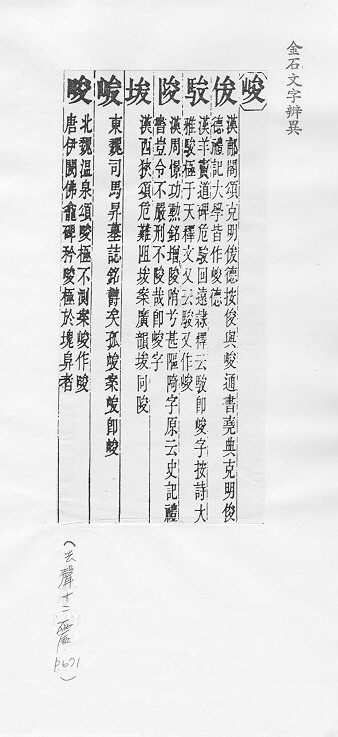 金石文字辨異
峻
俊 漢郙閣頌克明俊德按俊與峻通書堯典克明俊
德禮記大學皆作峻德
駿 漢羊竇道碑危駿回遠隸釋云駿卽峻字按詩大
雅駿極于天釋文又云駿又作峻
陖 漢周憬功勲銘增陖隋兮甚隁隋字原云史記禮
書豈令不嚴刑不陖哉卽峻字
埈 漢西狹頌危難阻埈案廣韻埈同陖
東魏司馬昇墓誌銘鬱矣孤案卽峻
北魏溫泉頌極不測案峻作
唐伊闕佛龕碑矜極於塊阜者
(去聲十二震 p671)